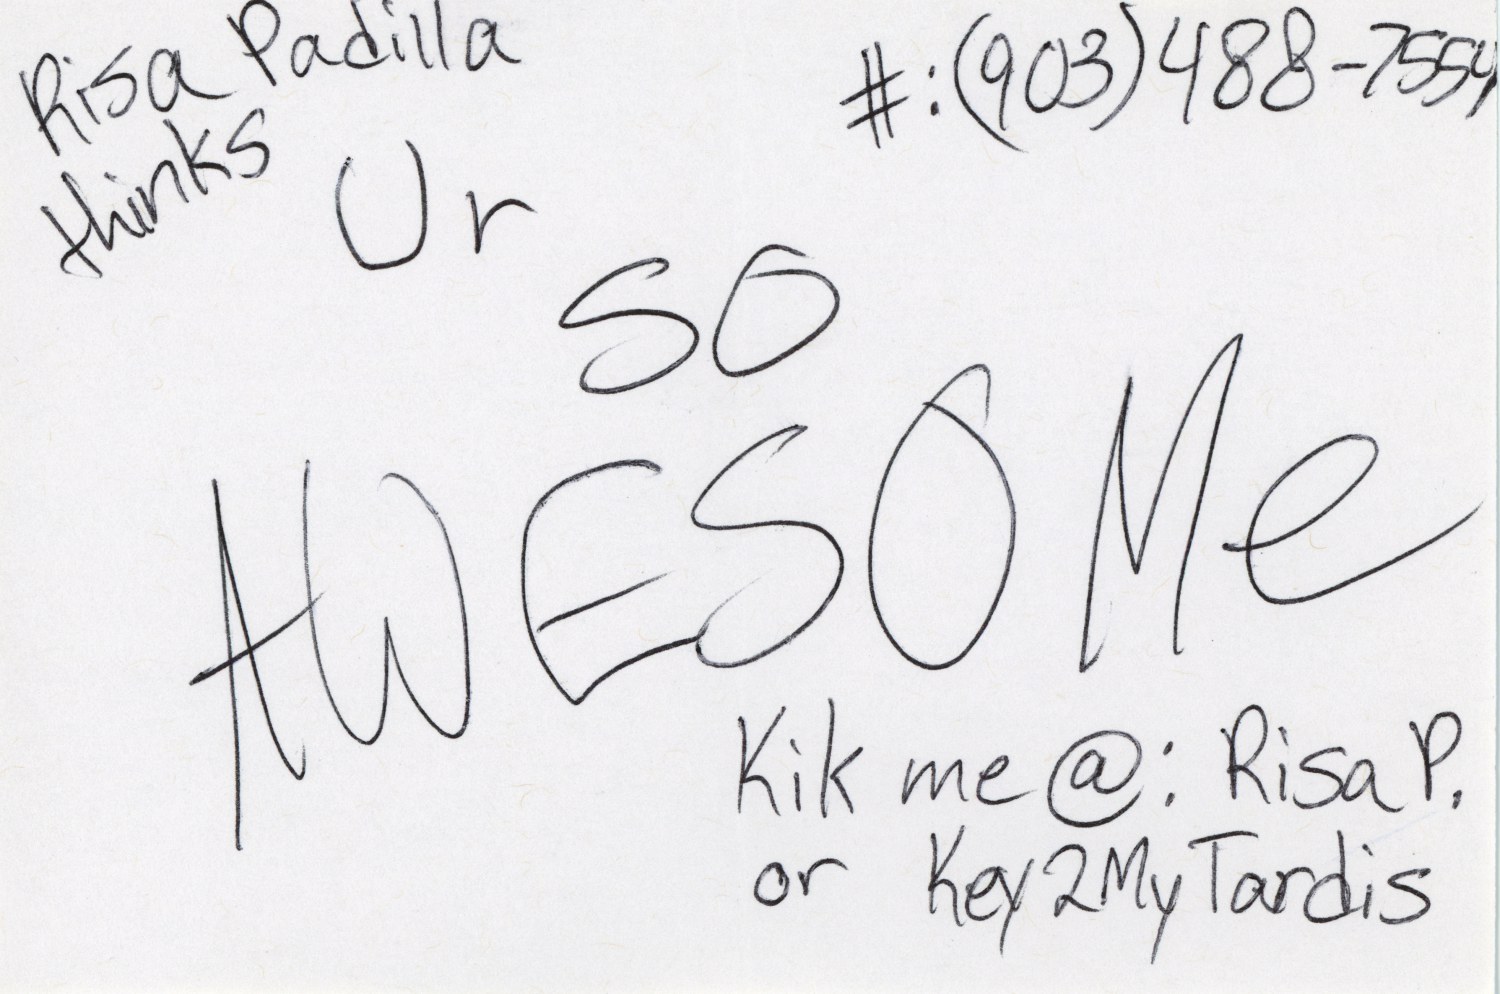 Risa Padilla
thinks
#:(903)488-7554
Ur
so
AWESOMe
Kik me @: Risa P.
or Key2MyTardis